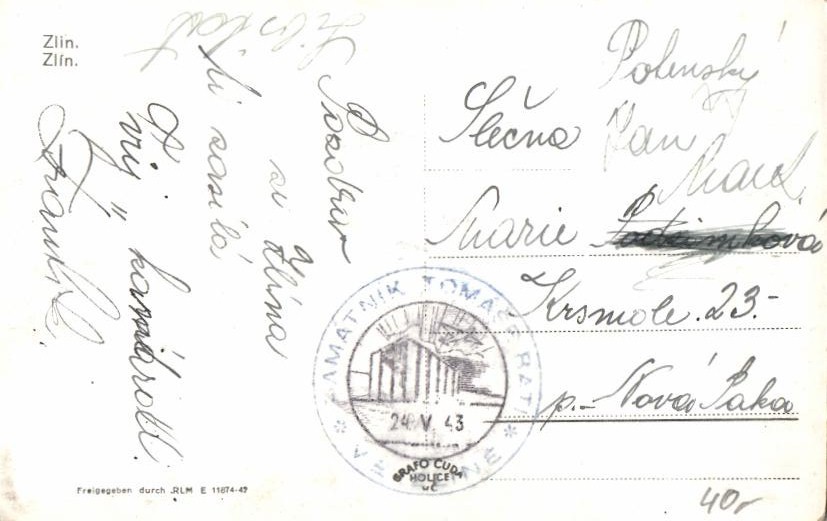 Zlin.
Zlín.
Pozdrav
ze Zlína
ti zasílá
Tvůj "kamarád".
Slečna
Marie
Krsmole.23.-
p.-Nová Paka
Polenský
Jan
PAMÁTNÍK TOMÁŠE BATI
* VE ZLÍNĚ *
24 V. 43
GRAFO ČUDA
HOLICE
Freigegeben durch RLM E 11874-42
40,-